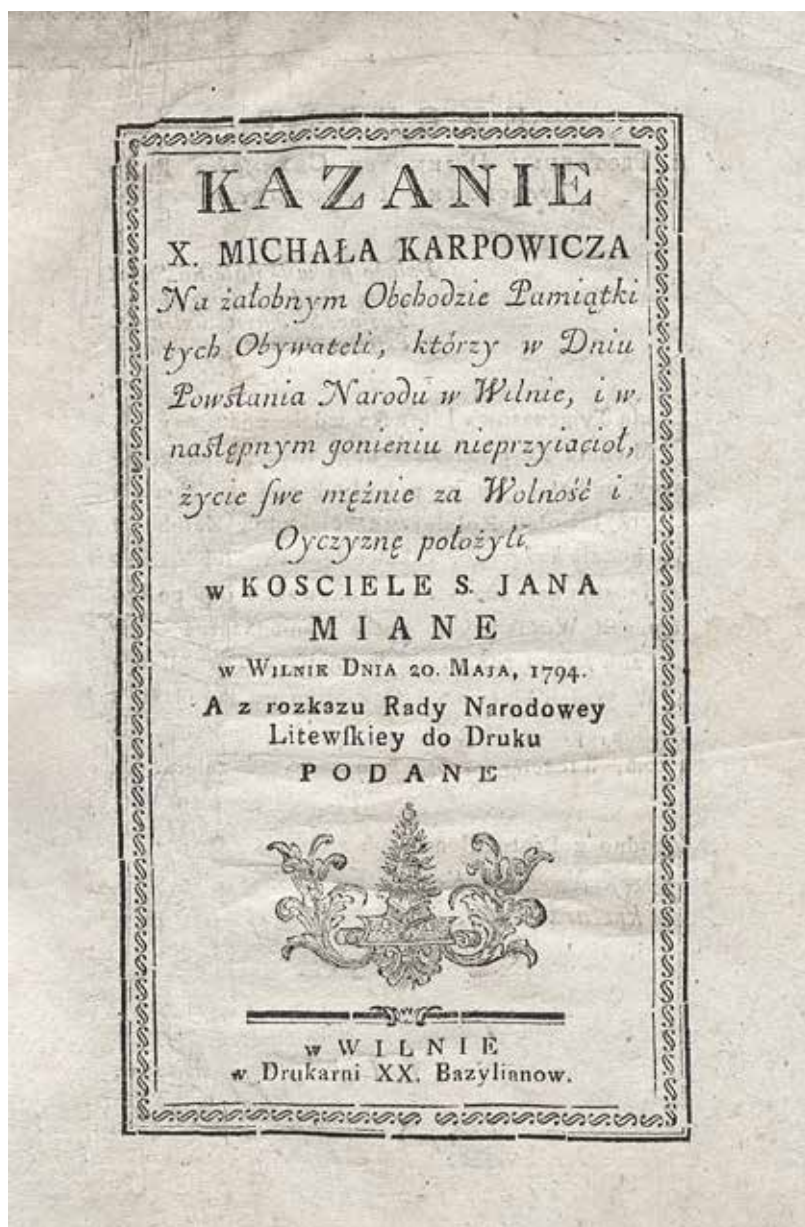 KAZANIE
X. MICHAŁA KARPOWICZA
Na żałobnym Obchodzie Pamiątki
tych Obywateli, którzy w Dniu
Powſtania Narodu w Wilnie, i w
naſtępnym gonieniu nieprzyiacioł,
życie ſwe mężnie za Wolność i
Oyczyznę położyli
w KOSCIELE S. JANA
MIANE
w WILNIE DNIA 20. MAJA, 1794.
A z rozkazu Rady Narodowey
Litewſkiey do Druku
PODANE
w WILNIE
w Drukarni XX. Bazylianow.